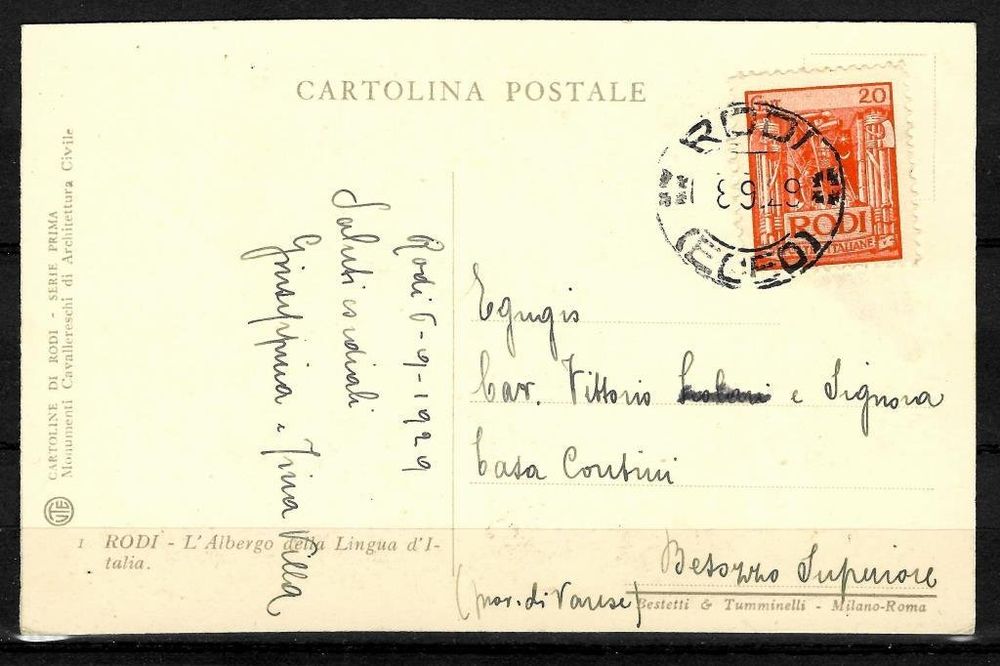 CARTOLINA POSTALE
CARTOLINE DI RODI - SERIE PRIMA
Monumenti Cavallereschi di Architettura Civile
UTE
20
RODI
ITALIANE
RODI
8 9.29
(EGEO)
Rodi 6-9-1929
Saluti cordiali
Giuseppina e Tina Villa
Egregio
Cav. Vittorio e Signora
Casa Contini
Besozzo Superiore
(prov. di Varese)
1 RODI - L'Albergo della Lingua d'I-
talia.
Bestetti & Tumminelli - Milano-Roma